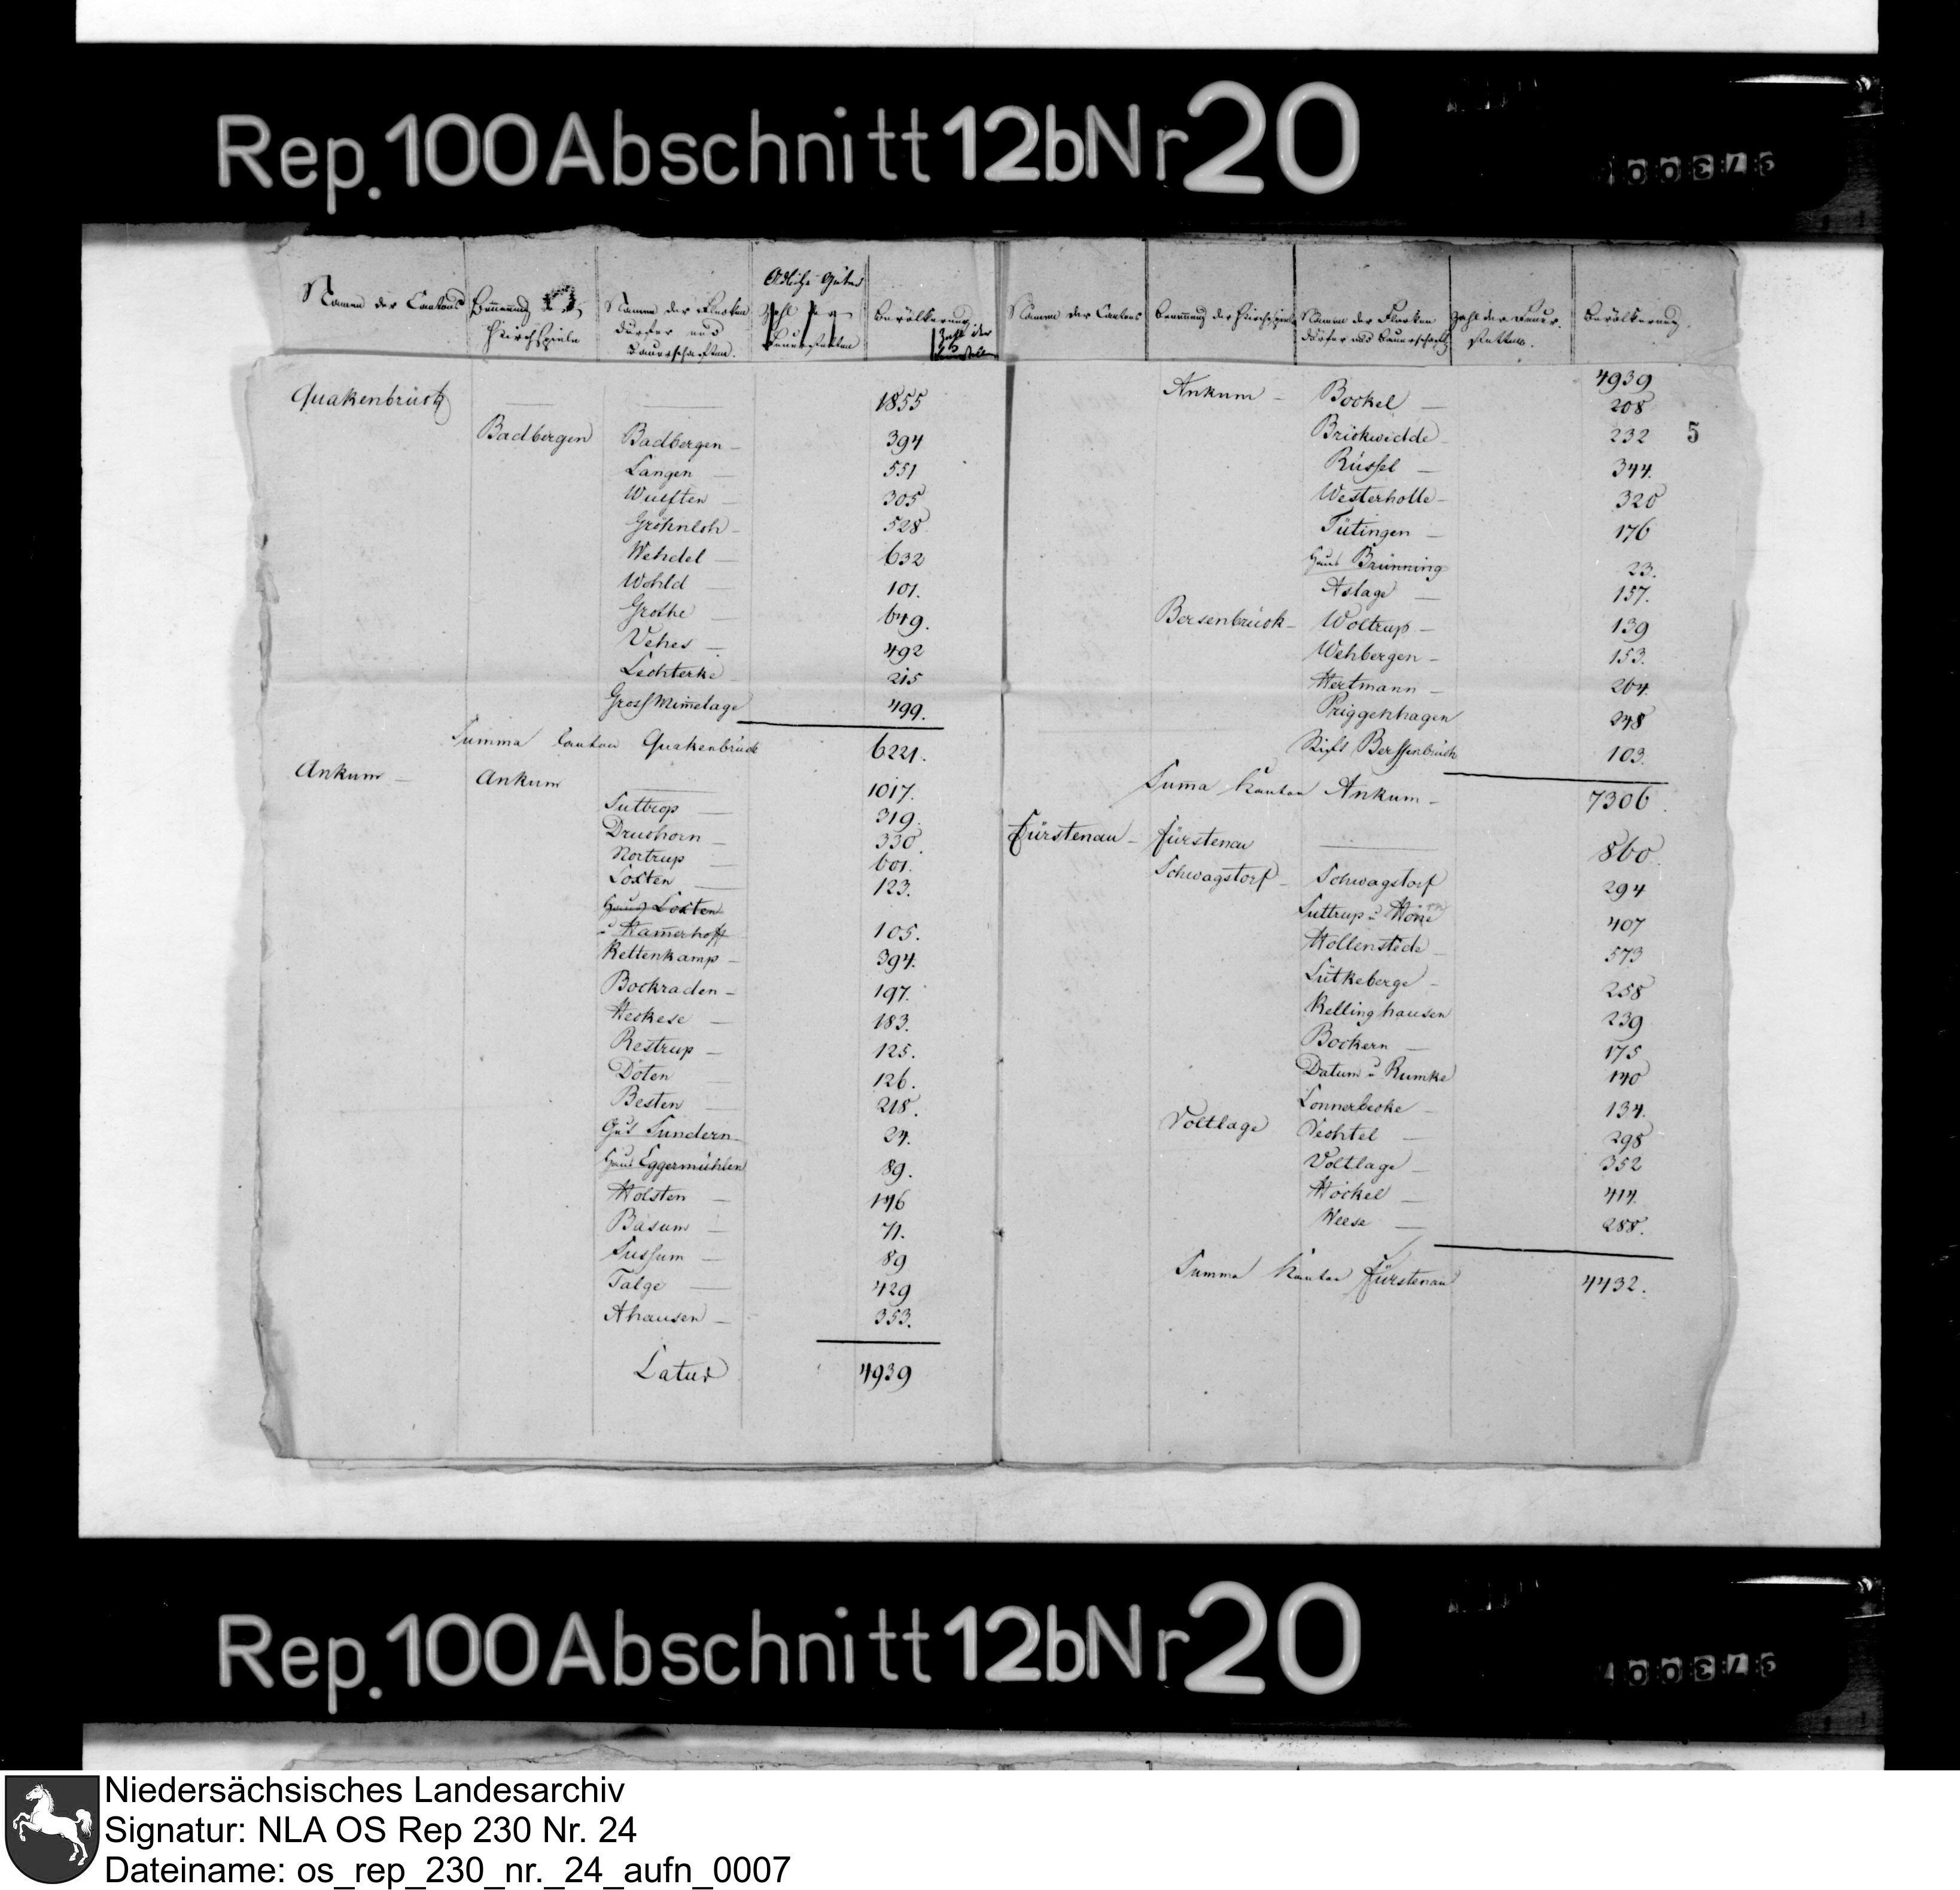 Rep. 100 Abschnitt 12b Nr 20
Namen der Cantons
Benennung der Kirchspiele
Namen der Flecken Dörfer und Bauerschaften.
Adliche Güter
Zahl der Feuerstellen
Bevölkerung
Zahl der
Quakenbrück 1855
Badbergen Badbergen 394
Langen 551
Wulften 305
Gröhnloh 528
Wehdel 632
Wohld 101.
Grothe 649.
Vehes 492
Lechterke 215
Gross Mimelage 499.
Summa Canton Quakenbrück 6221.
Ankum Ankum 1017.
Suttrop 319.
Druchorn 330.
Nortrup 601.
Loxten 123.
Haus Loxten
u Hamerhoff 105.
Kettenkamp 394.
Bockraden 197.
Heckese 183.
Restrup 125.
Döten 126.
Besten 218.
Gut Sundern 24.
Haus Eggermühlen 89.
Holsten 146
Basum 71.
Sussum 89
Talge 429
Ahausen 353.
Latus 4939
Namen der Cantons
Benennung der Kirchspiele
Namen der Flecken Dörfer und Bauerschaften
Zahl der Feuerstellen.
Bevölkerung.
4939
Ankum Bockel 208
5
Brickwedde 232
Rüssel 344.
Westerholte 320
Tütingen 176
Haus Brünning 23.
Aslage 157.
Bersenbrück Woltrup 139
Wehbergen 153.
Hertmann 264.
Priggenhagen 248
Stift Berssenbrück 103.
Suma Kanton Ankum 7306.
Fürstenau Fürstenau 860.
Schwagstorf Schwagstorf 294
Suttrup u Höne 407
Hollenstede 573
Lütkeberge 258
Kellinghausen 239
Bockern 175
Datum u Rumke 140
Lonnerbecke 134.
Voltlage Vechtel 298
Voltlage 352
Höckel 414.
Weese 288.
Summa Kanton Fürstenau 4432.
Rep. 100 Abschnitt 12b Nr 20
Niedersächsisches Landesarchiv
Signatur: NLA OS Rep 230 Nr. 24
Dateiname: os_rep_230_nr._24_aufn_0007